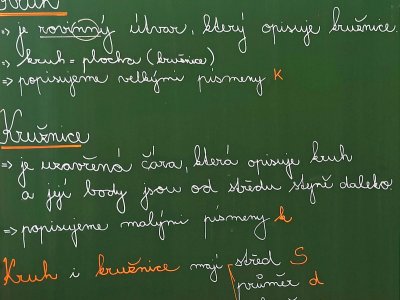 Kruh
⇒ je rovinný útvar, který opisuje kružnice.
⇒ kruh = plocha (kružnice)
⇒ popisujeme velkými písmeny K
Kružnice
⇒ je uzavřená čára, která opisuje kruh
a její body jsou od středu stejně daleko
⇒ popisujeme malými písmeny k
Kruh i kružnice mají střed S
průměr d